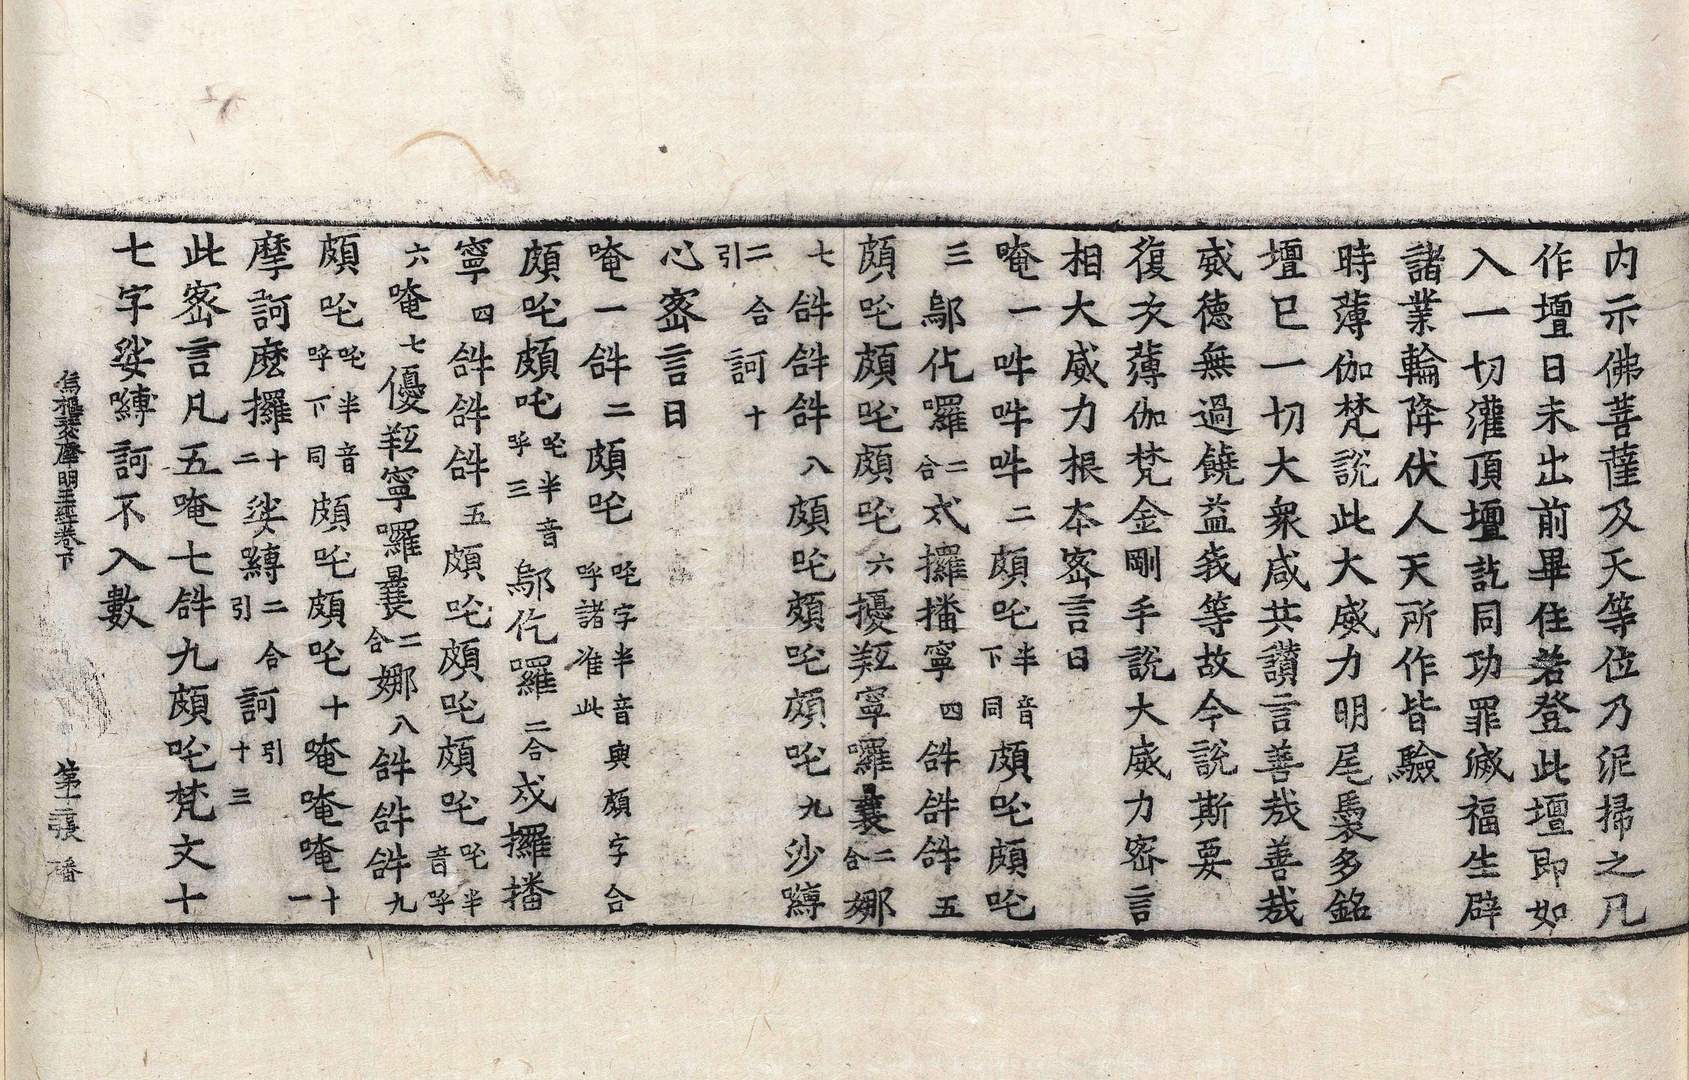 内示佛菩薩及天等位乃泥掃之凡
作壇日未出前畢住若登此壇即如
入一切灌頂壇訖同功罪滅福生辟
諸業輪降伏人天所作皆驗
時薄伽梵說此大威力明尾㮏多銘
壇已一切大衆咸共讃言善㢤善㢤
威德無過饒益我等故今說斯要
復次薄伽梵金剛手說大威力密言
相大威力根本密言曰
唵一吽吽吽二頗吒半音下同頗吒頗吒
三鄔仡囉二合弍攞播寧四𤙖𤙖𤙖五
頗吒頗吒頗吒六擾羫寧囉曩二合娜
七𤙖𤙖𤙖八頗吒頗吒頗吒九沙嚩
二合引訶十
心密言曰
唵一𤙖二頗吒吒字半音與頗字合呼諸准此
頗吒頗吒吒半音呼三鄔仡囉二合戍攞播
寧四𤙖𤙖𤙖五頗吒頗吒頗吒吒半音呼
六唵七優羫寧囉曩二合娜八𤙖𤙖𤙖九
頗吒吒半音呼下同頗吒頗吒十唵唵唵十一
摩訶麽攞十二娑嚩二合引訶引十三
此密言凡五唵七𤙖九頗吒梵文十
七字娑嚩訶不入數
焦摩明王經卷下 第十二張 㙛